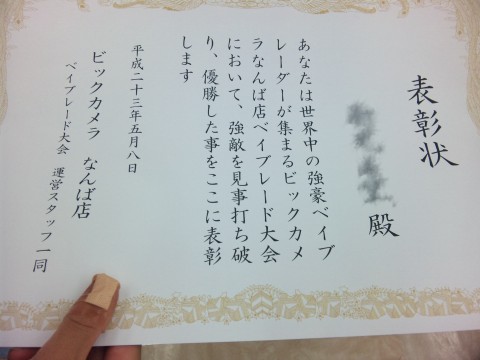 表彰状
殿
あなたは世界中の強豪ベイブ
レーダーが集まるビックカメ
ラなんば店ベイブレード大会
において、強敵を見事打ち破
り、優勝した事をここに表彰
します
平成二十三年五月八日
ビックカメラ なんば店
ベイブレード大会 運営スタッフ一同